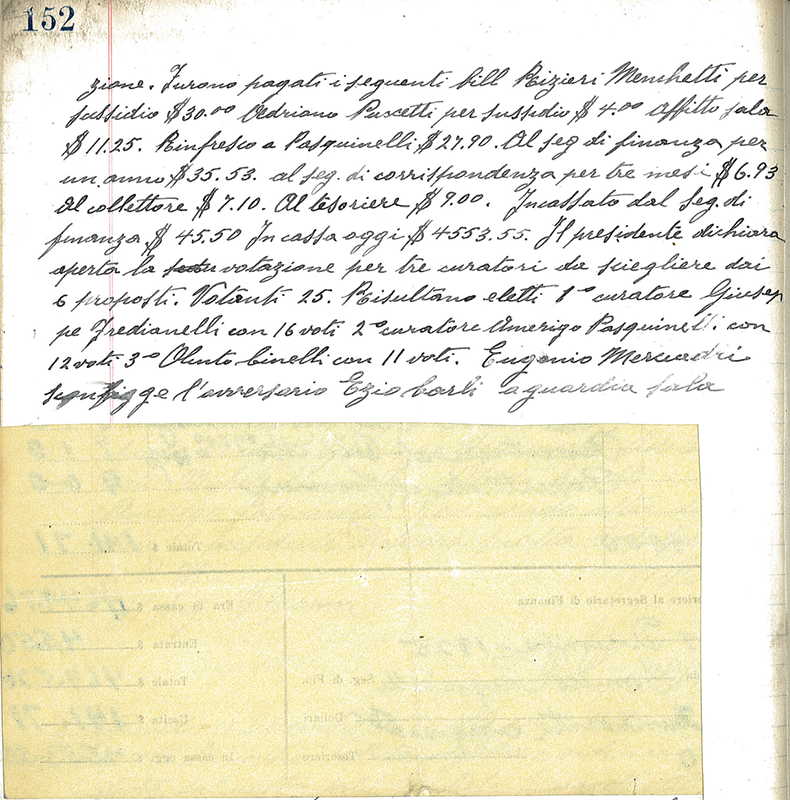 152
zione. Furono pagati i seguenti bill Rizieri Menchetti per
sussidio $30.00 Adriano Puscetti per sussidio $ 4.00 affitto sala
$ 11.25. Rinfresco a Pasquinelli $ 27.90. Al seg di finanza per
un anno $ 35.53. al seg. di corrispondenza per tre mesi $ 6.93
Al collettore $ 7.10. Al tesoriere $ 9.00. Incassato dal seg. di
finanza $ 45.50 In cassa oggi $ 4553.55. Il presidente dichiara
aperta la votazione per tre curatori da sciegliere dai
6 proposti. Votanti 25. Risultano eletti 1º curatore Giusep
pe Fredianelli con 16 voti 2º curatore Amerigo Pasquinelli con
12 voti 3º Olinto Cinelli con 11 voti. Eugenio Mercuadri
sconfigge l'avversario Ezio Carli a guardia sala
Totale $
riere al Segretario di Finanza
Era in cassa $
Entrata $
Seg. di Fin. Totale $
Dollari Uscita $
Tesoriere In cassa oggi $